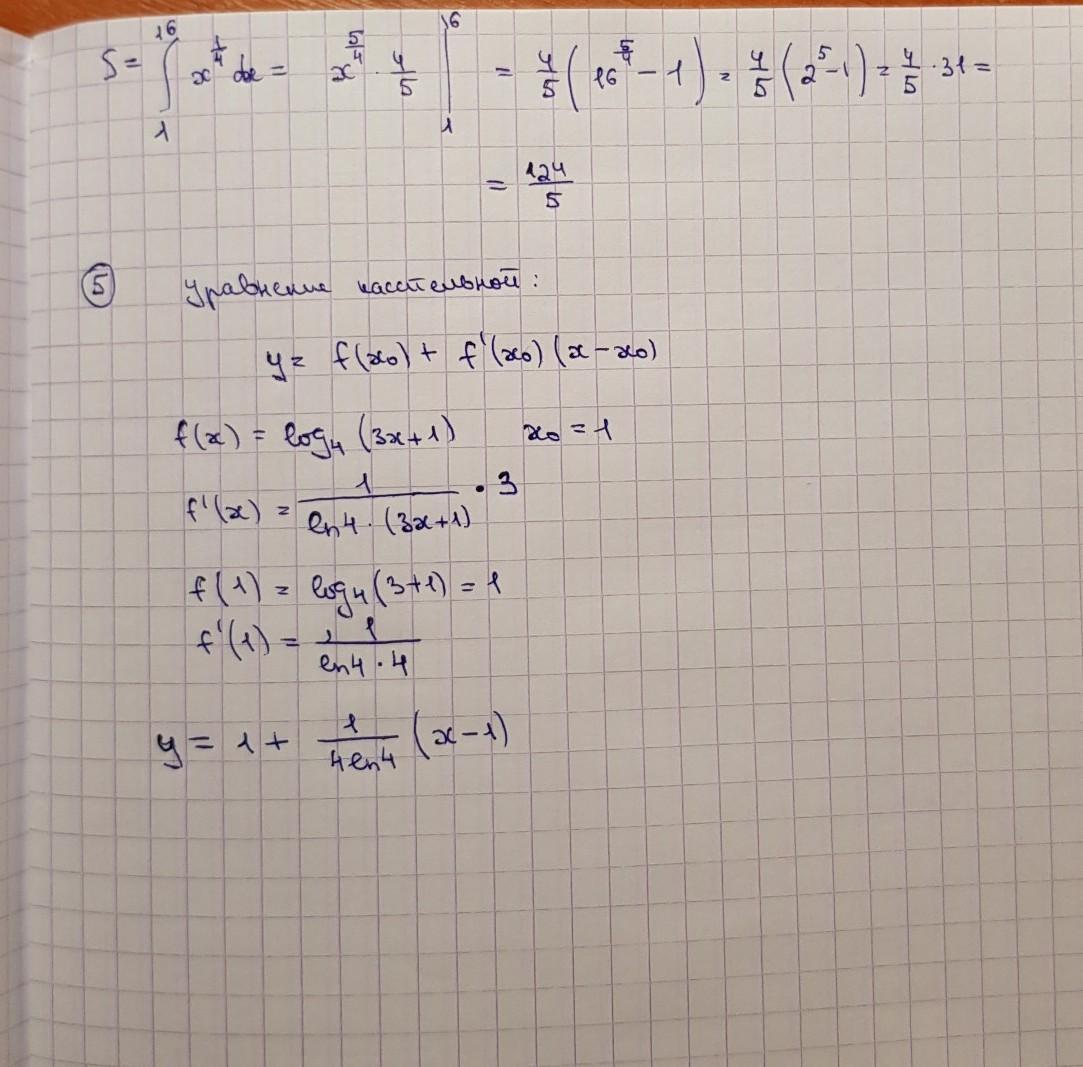 S = ∫₁¹⁶ x^(1/4) dx = x^(5/4) · 4/5 |₁¹⁶ = 4/5 (16^(5/4) - 1) = 4/5 (2⁵ - 1) = 4/5 · 31 =
= 124/5
⑤ Уравнение касательной:
y = f(x₀) + f'(x₀) (x - x₀)
f(x) = log₄ (3x+1) x₀ = 1
f'(x) = 1/(ln4 · (3x+1)) · 3
f(1) = log₄(3+1) = 1
f'(1) = 1/(ln4 · 4)
y = 1 + 1/(4ln4) (x - 1)